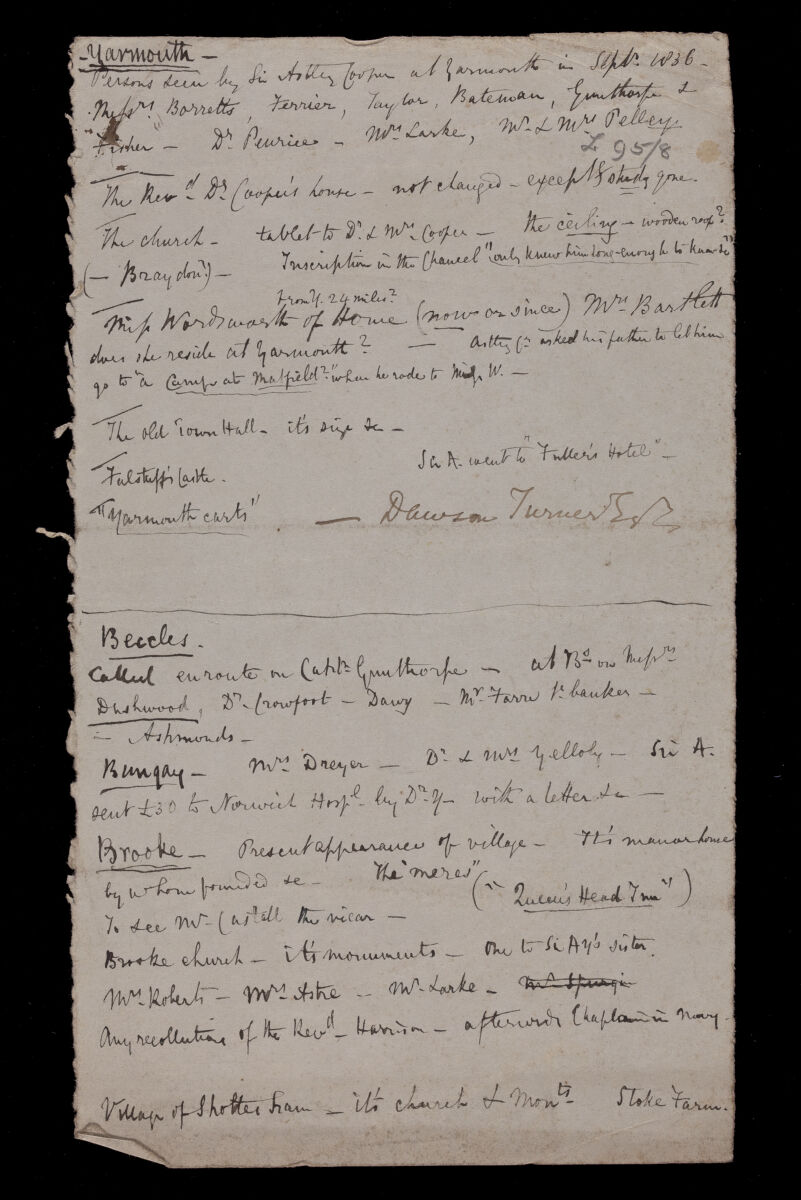 - Yarmouth -
Persons seen by Sir Astley Cooper at Yarmouth in Septr. 1836 -
Messrs. Borretts, Ferrier, Taylor, Bateman, Gunthorpe &
Fisher - Dr. Penrice - Mrs. Larke, Mr. & Mrs Pelley.
L 95/8
The Revd. Dr. Cooper's house - not changed - except study gone.
The church - tablet to Dr. & Mrs. Cooper - the ceiling - wooden roof?
(- Braydon?) - Inscription in the Chancel "only knew him long enough to know &c"
From Y. 24 miles?
Miss Wordsworth of Home (now or since) Mrs Bartlett
does she reside at Yarmouth? - Astley Cr. asked his father to let him
go to "a Camp at Matfield?" when he rode to Miss W. -
The old Town Hall - it's size &c -
Sir A. went to "Fuller's Hotel" -
Falstaff's Castle.
"Yarmouth carts" - Dawson Turner Esqr.
Beccles.
Called en route on Captn. Gunthorpe - at Bs. on Messrs
Dashwood, Dr. Crowfoot - Davy - Mr. Farre banker -
- Ashmonds -
Bungay - Mrs. Dreyer - Dr. & Mrs Yelloly - Sir A.
sent £30 to Norwich Hospl. by Dr. Y - with a letter &c -
Brooke - Present appearance of village - It's manor house
by whom founded &c - The "meres" ("Queen's Head Inn")
To see Mr. Castell the vicar -
Brooke church - it's monuments - one to Sir Ay's sister.
Mrs. Roberts - Mrs. Astre - Mr. Larke - Mr. Spurgin
Any recollections of the Revd - Harrison - afterwards Chaplain in Navy -
Village of Shottesham - it's church & Monts. Stoke Farm.